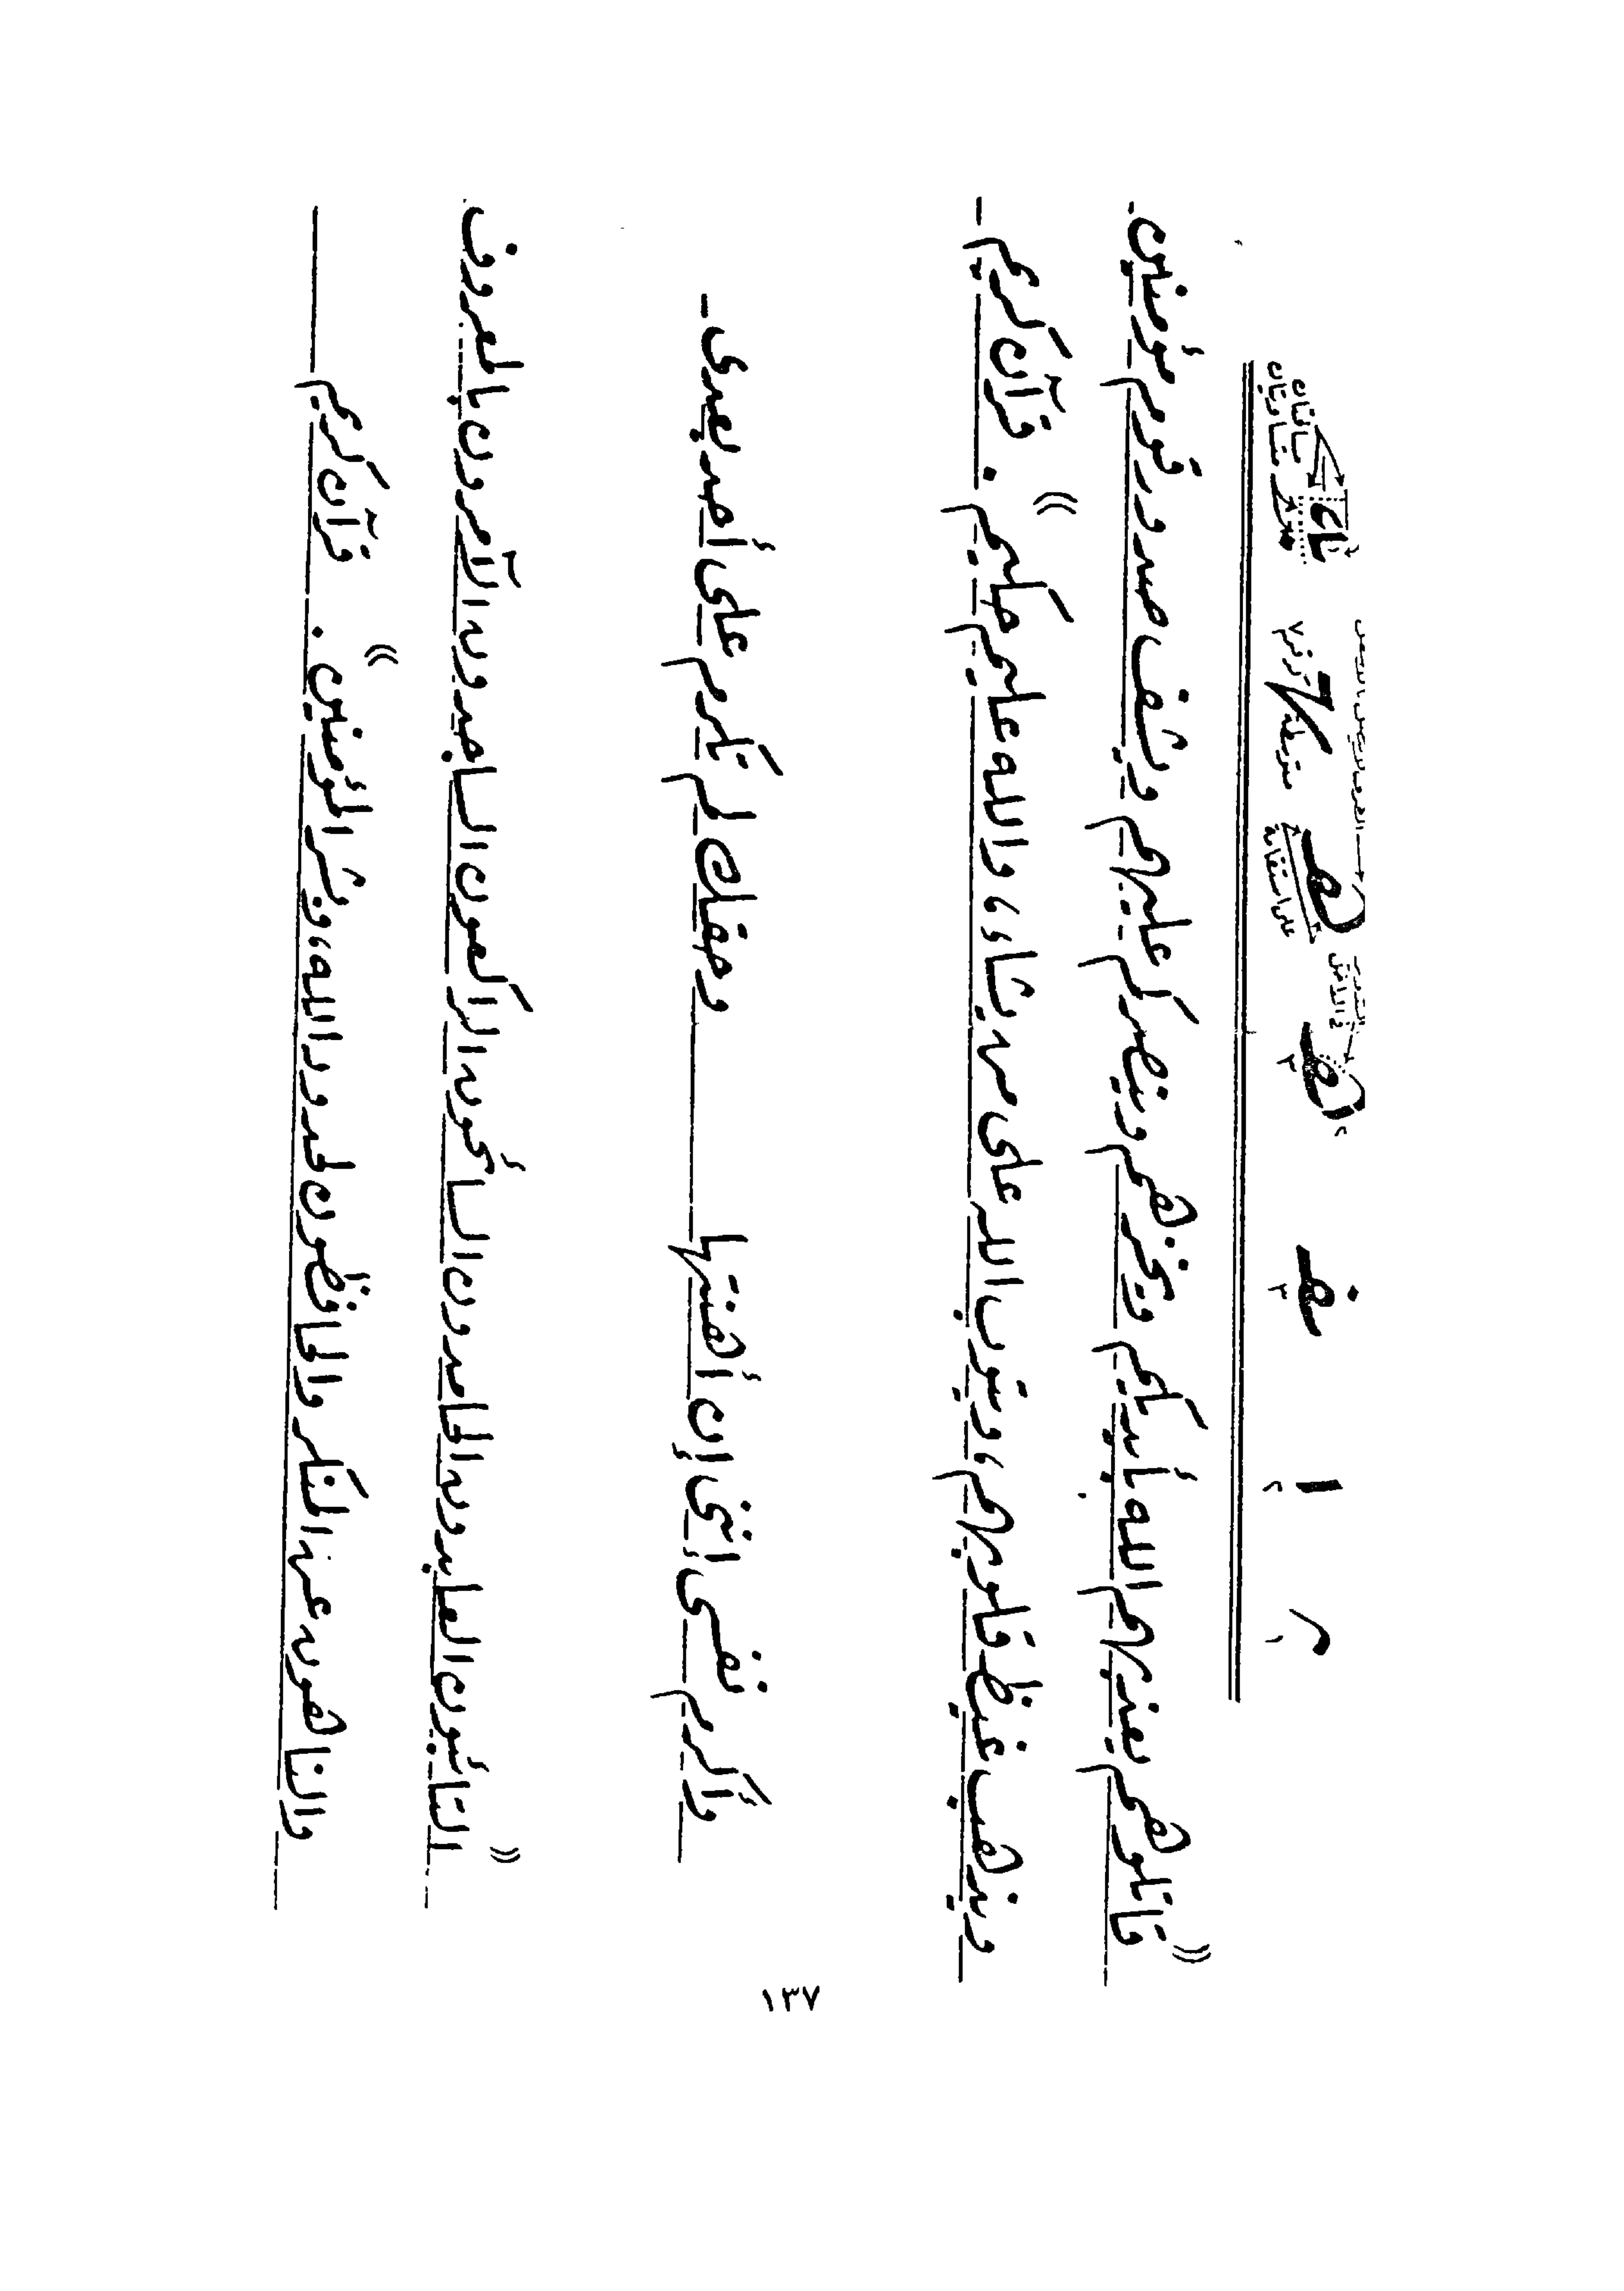 ((قاتلوهم يعذبهم الله بأيديكم ويخزهم وينصركم عليهم ويشف صدور قوم مؤمنين.
ويذهب غيظ قلوبهم، ويتوب الله على من يشاء، والله عليم حكيم)). قرآن كريم -
وأكرم نفسى إننى إن أهنتها وحقك لم تكرم على أحد بعدى -
((التائبون العابدون الحامدون السائحون الراكعون الساجدون الآمرون بالمعروف.
والناهون عن المنكر والحافظون لحدود الله، وبشر المؤمنين)). قرآن كريم
١٣٧